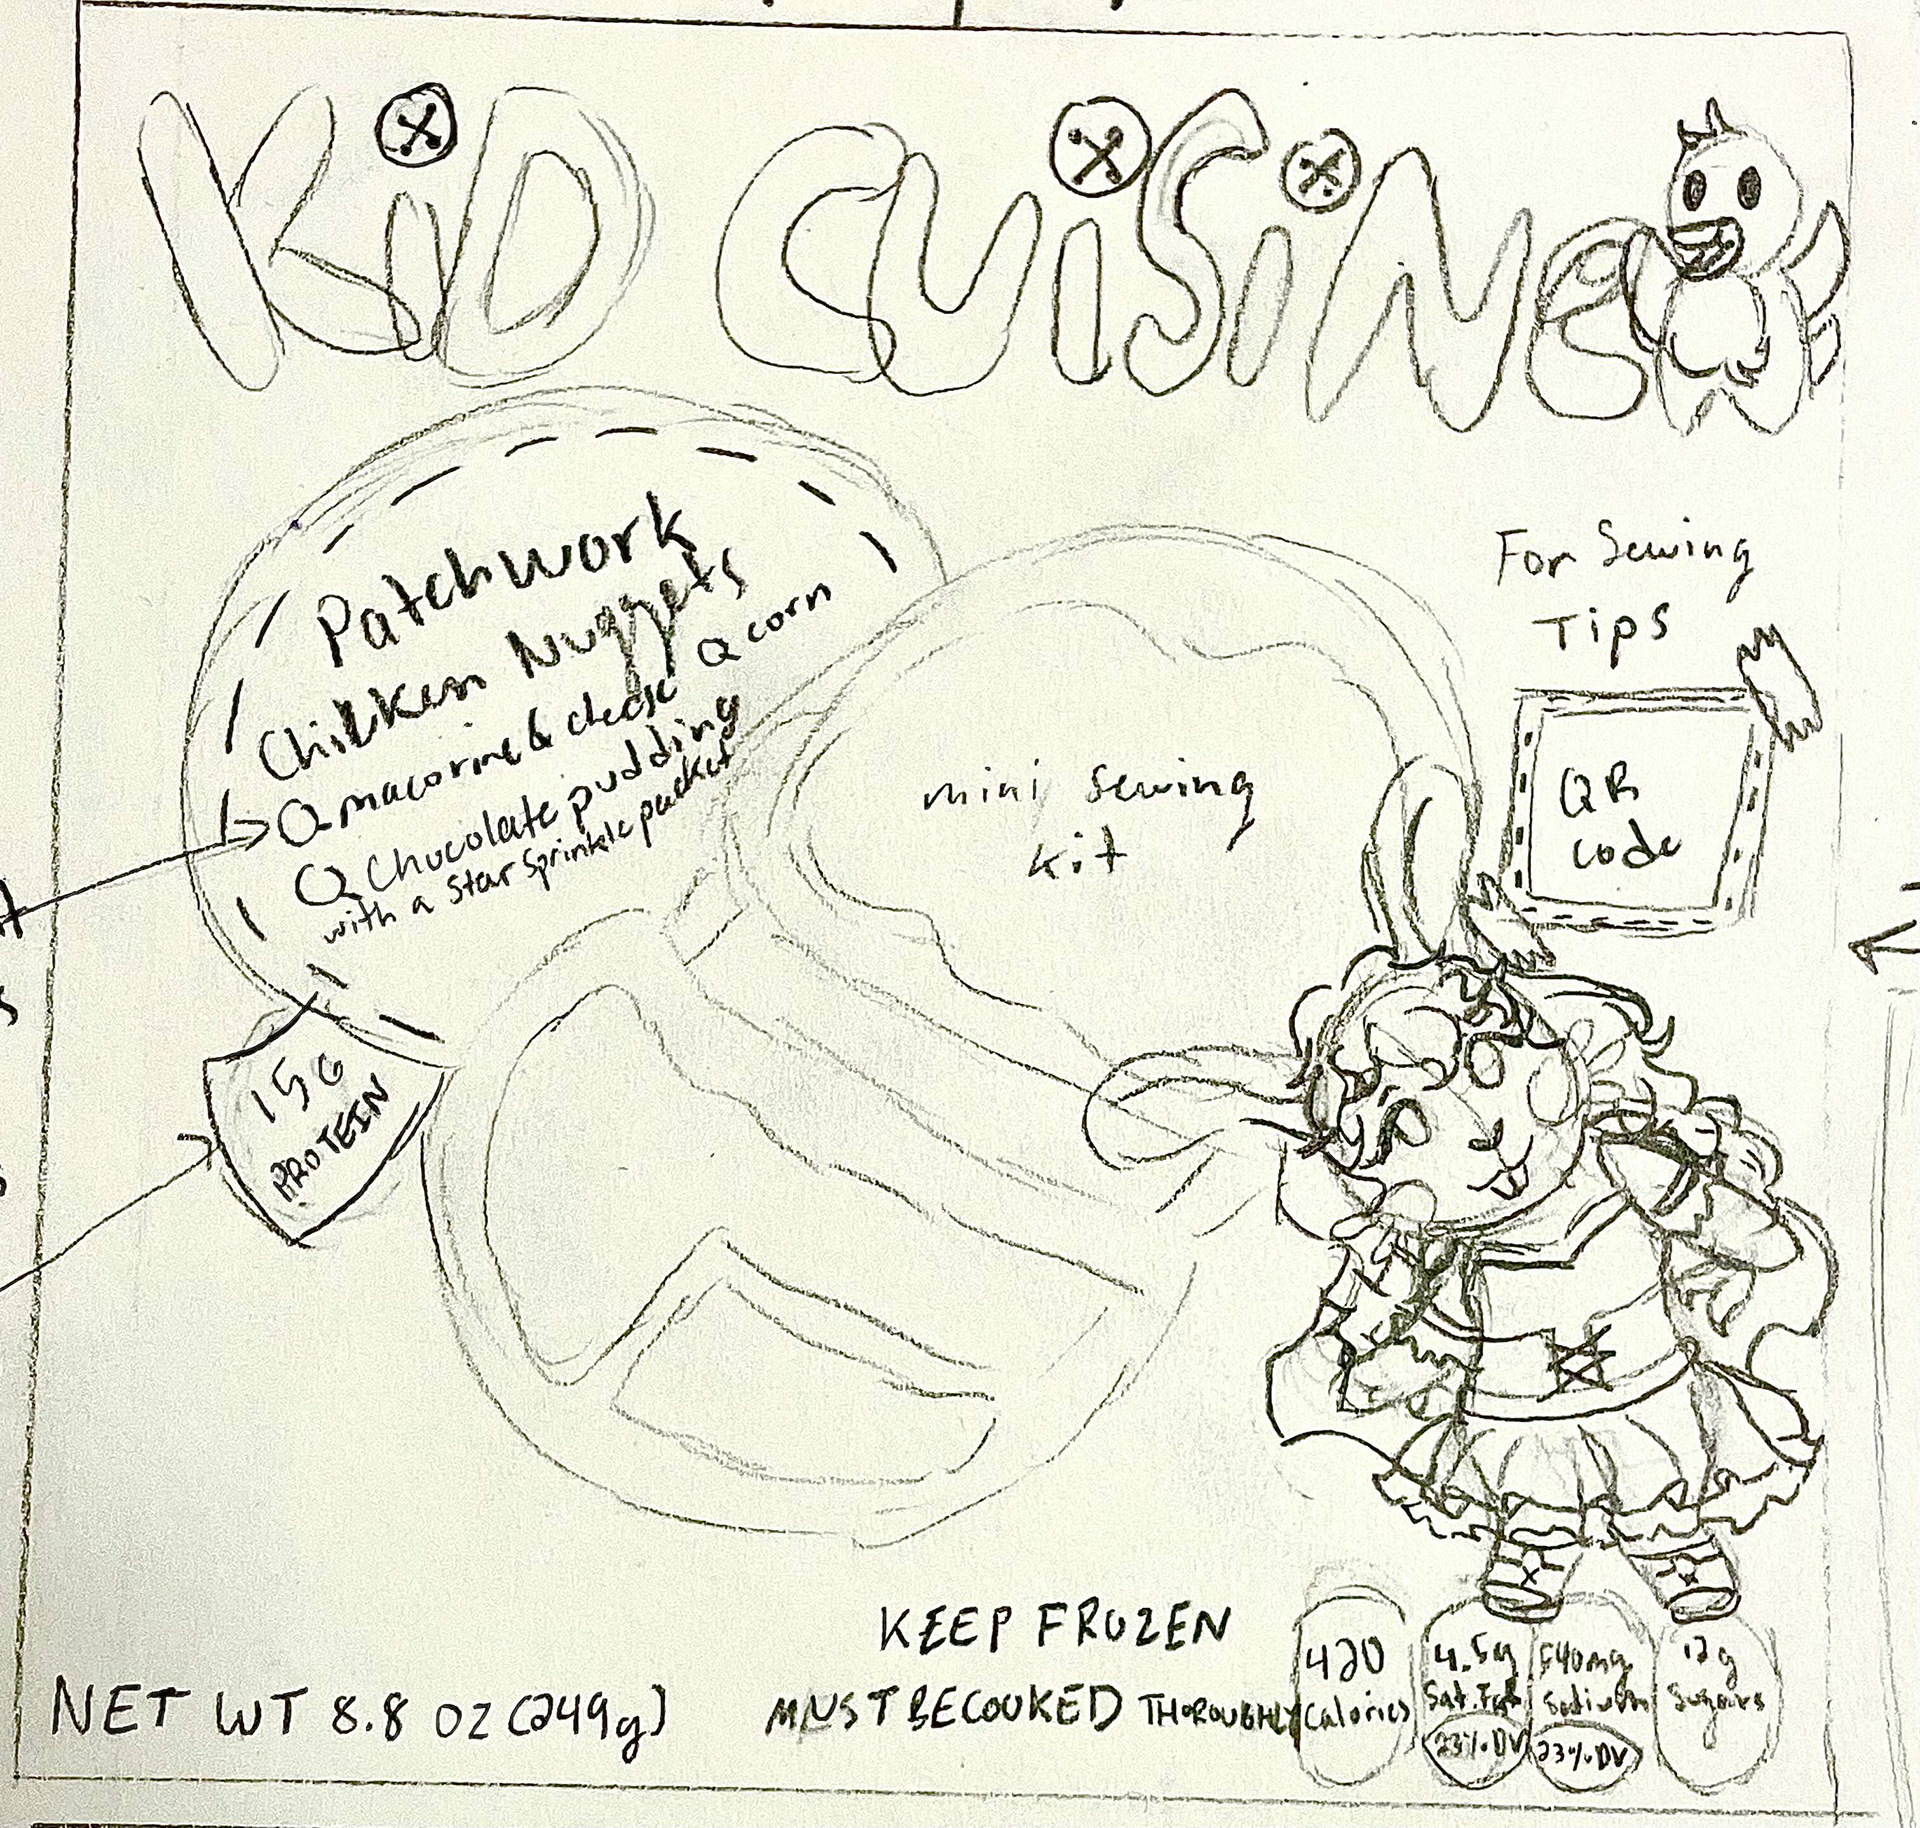 KiD CUiSiNe
Patchwork
Chicken Nuggets
macorine & cheese
corn
Chocolate pudding
with a Star Sprinkle packet
15G
PROTEIN
mini sewing
kit
For Sewing
Tips
QR
code
KEEP FROZEN
MUST BE COOKED THOROUGHLY
NET WT 8.8 OZ (249g)
420
Calories
4.5g
Sat. Fat
23% DV
540mg
Sodium
23% DV
12g
Sugars